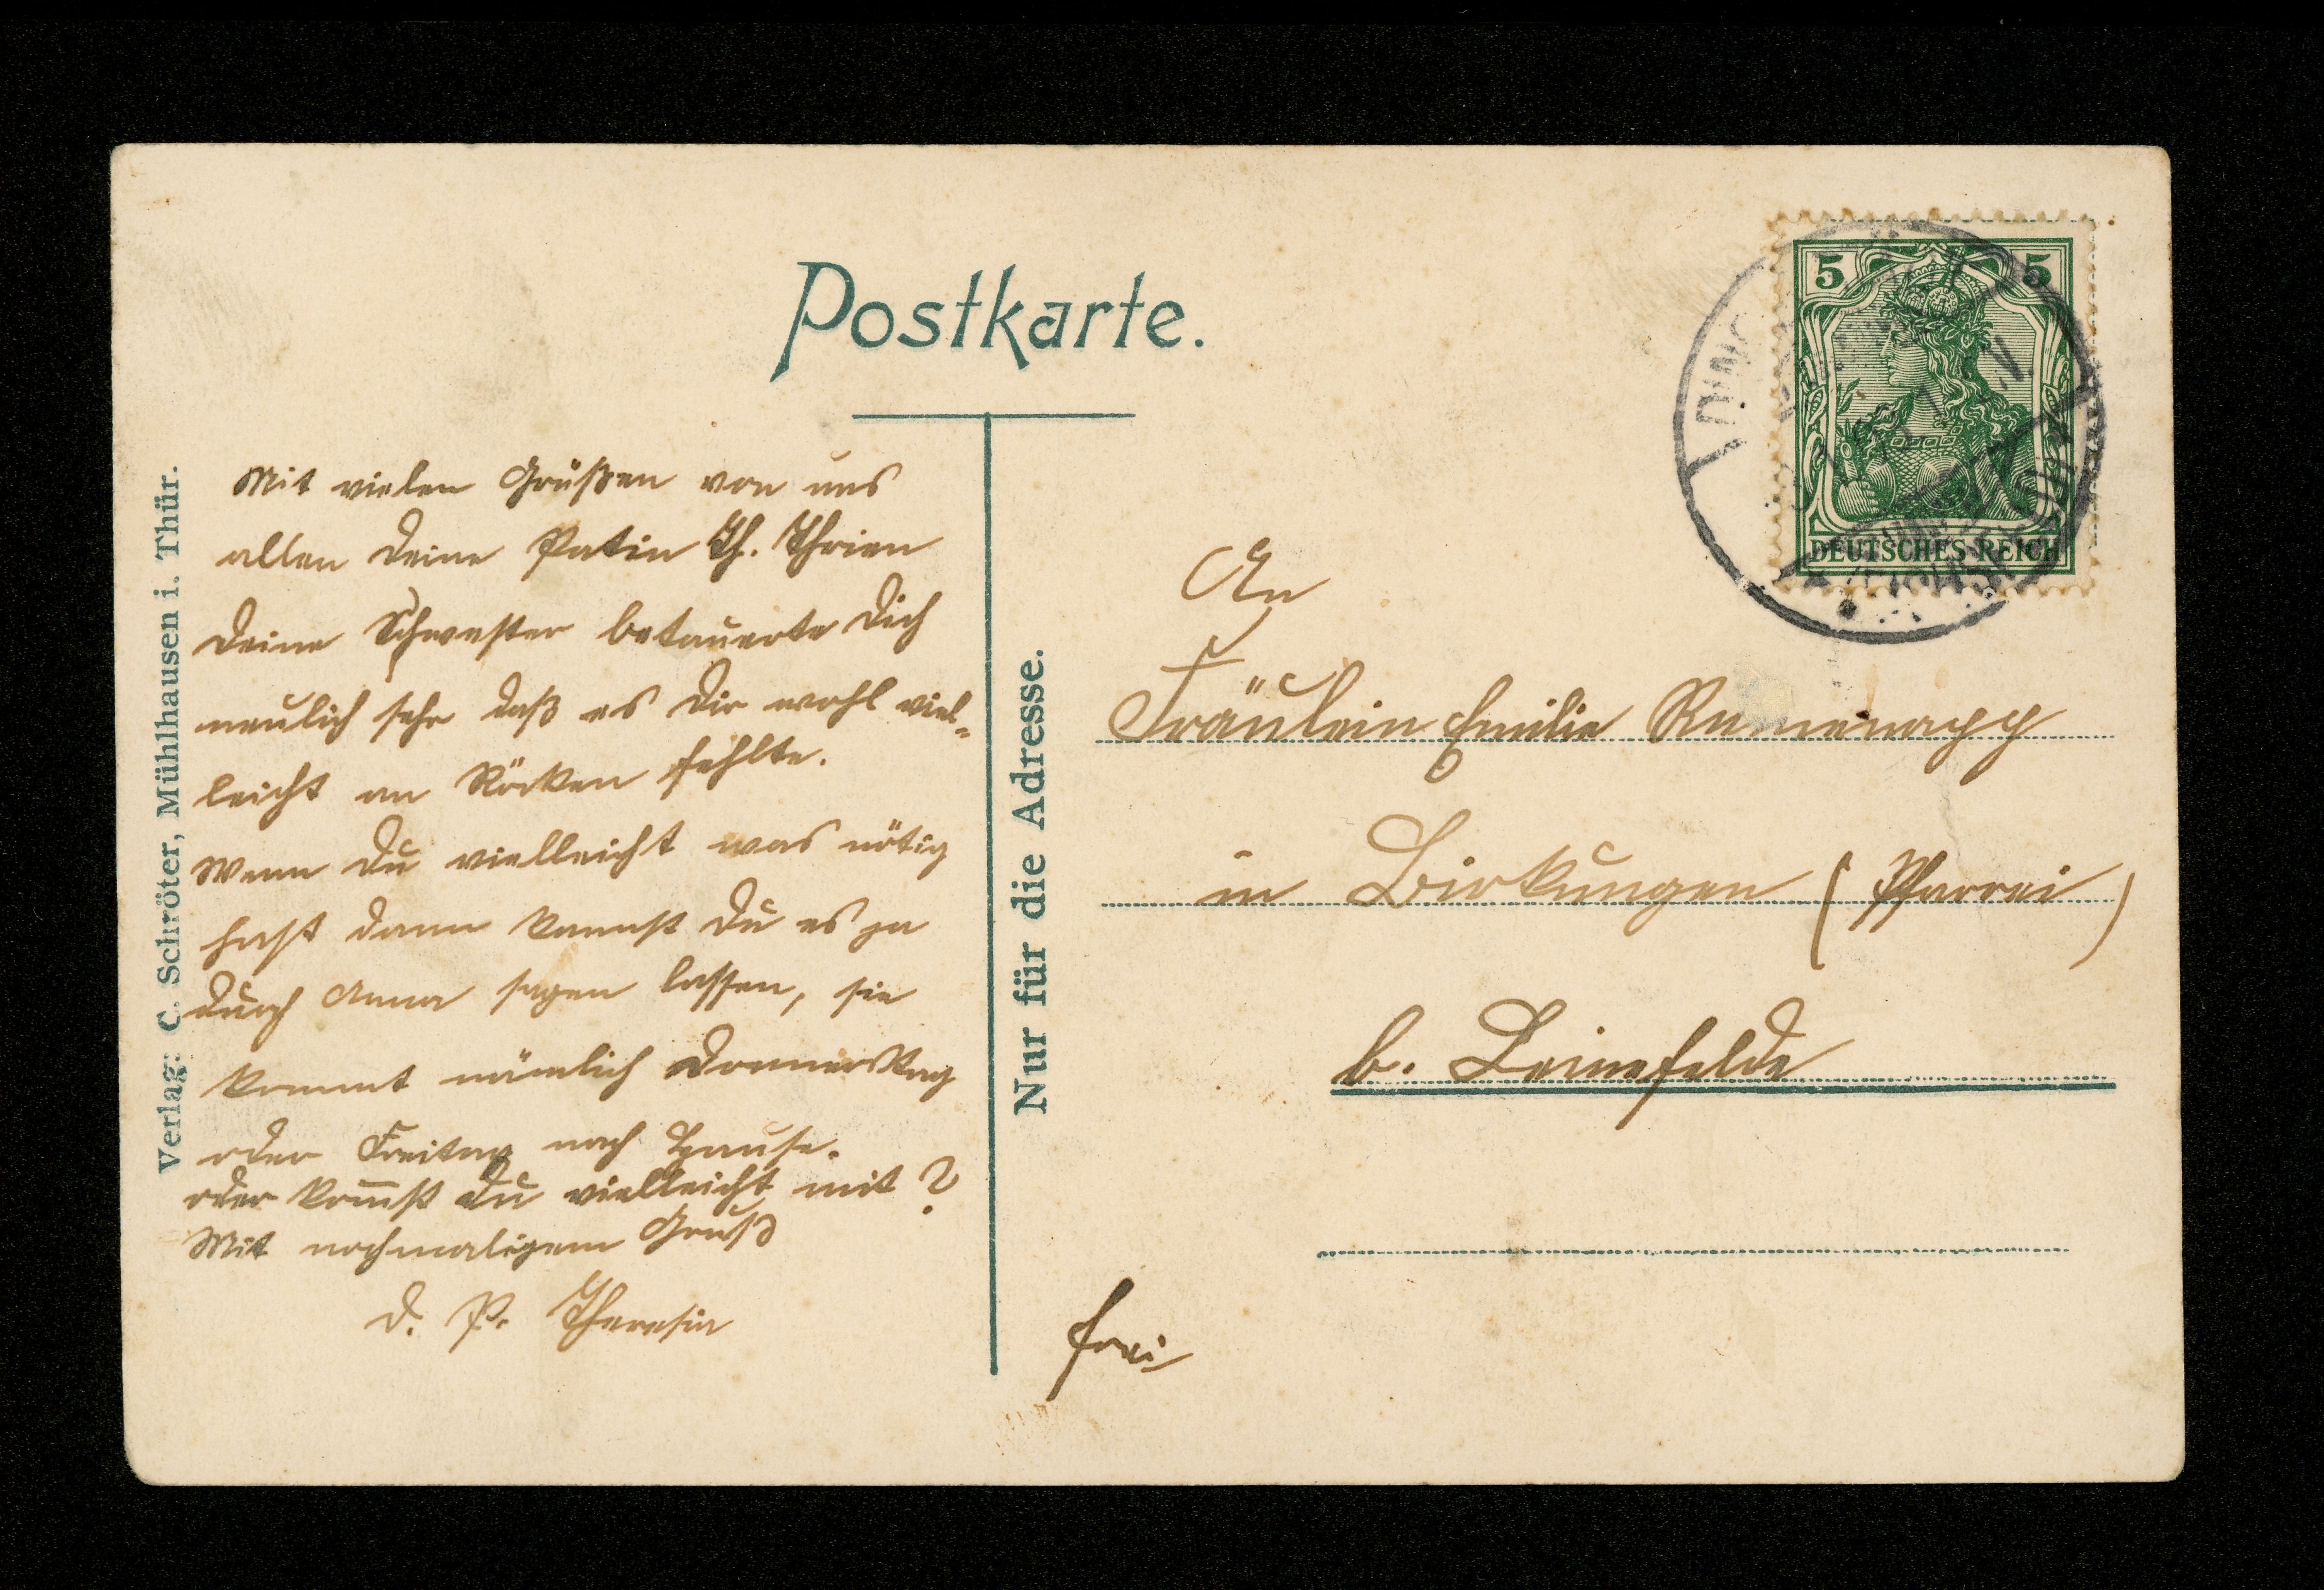 Postkarte.
Verlag: C. Schröter, Mühlhausen i. Thür.
Mit vielen Grüßen von uns
allen deine Patin Th. Thrien
Deine Schwester betauerte dich
neulich sehr daß es dir wohl viel-
leicht an Röcken fehlte.
Wenn du vielleicht was nötig
hast dann kannst du es ja
durch Anna sagen lassen, sie
kommt nämlich Donnerstag
oder Freitag nach Hause.
oder kom̅st du vielleicht mit?
Mit nochmaligem Gruß
d. P. Theresia
Nur für die Adresse.
5 5
DEUTSCHES REICH
An
Fräulein Emilie
in Birkungen (Pfarrei)
b. Leinefelde
frei